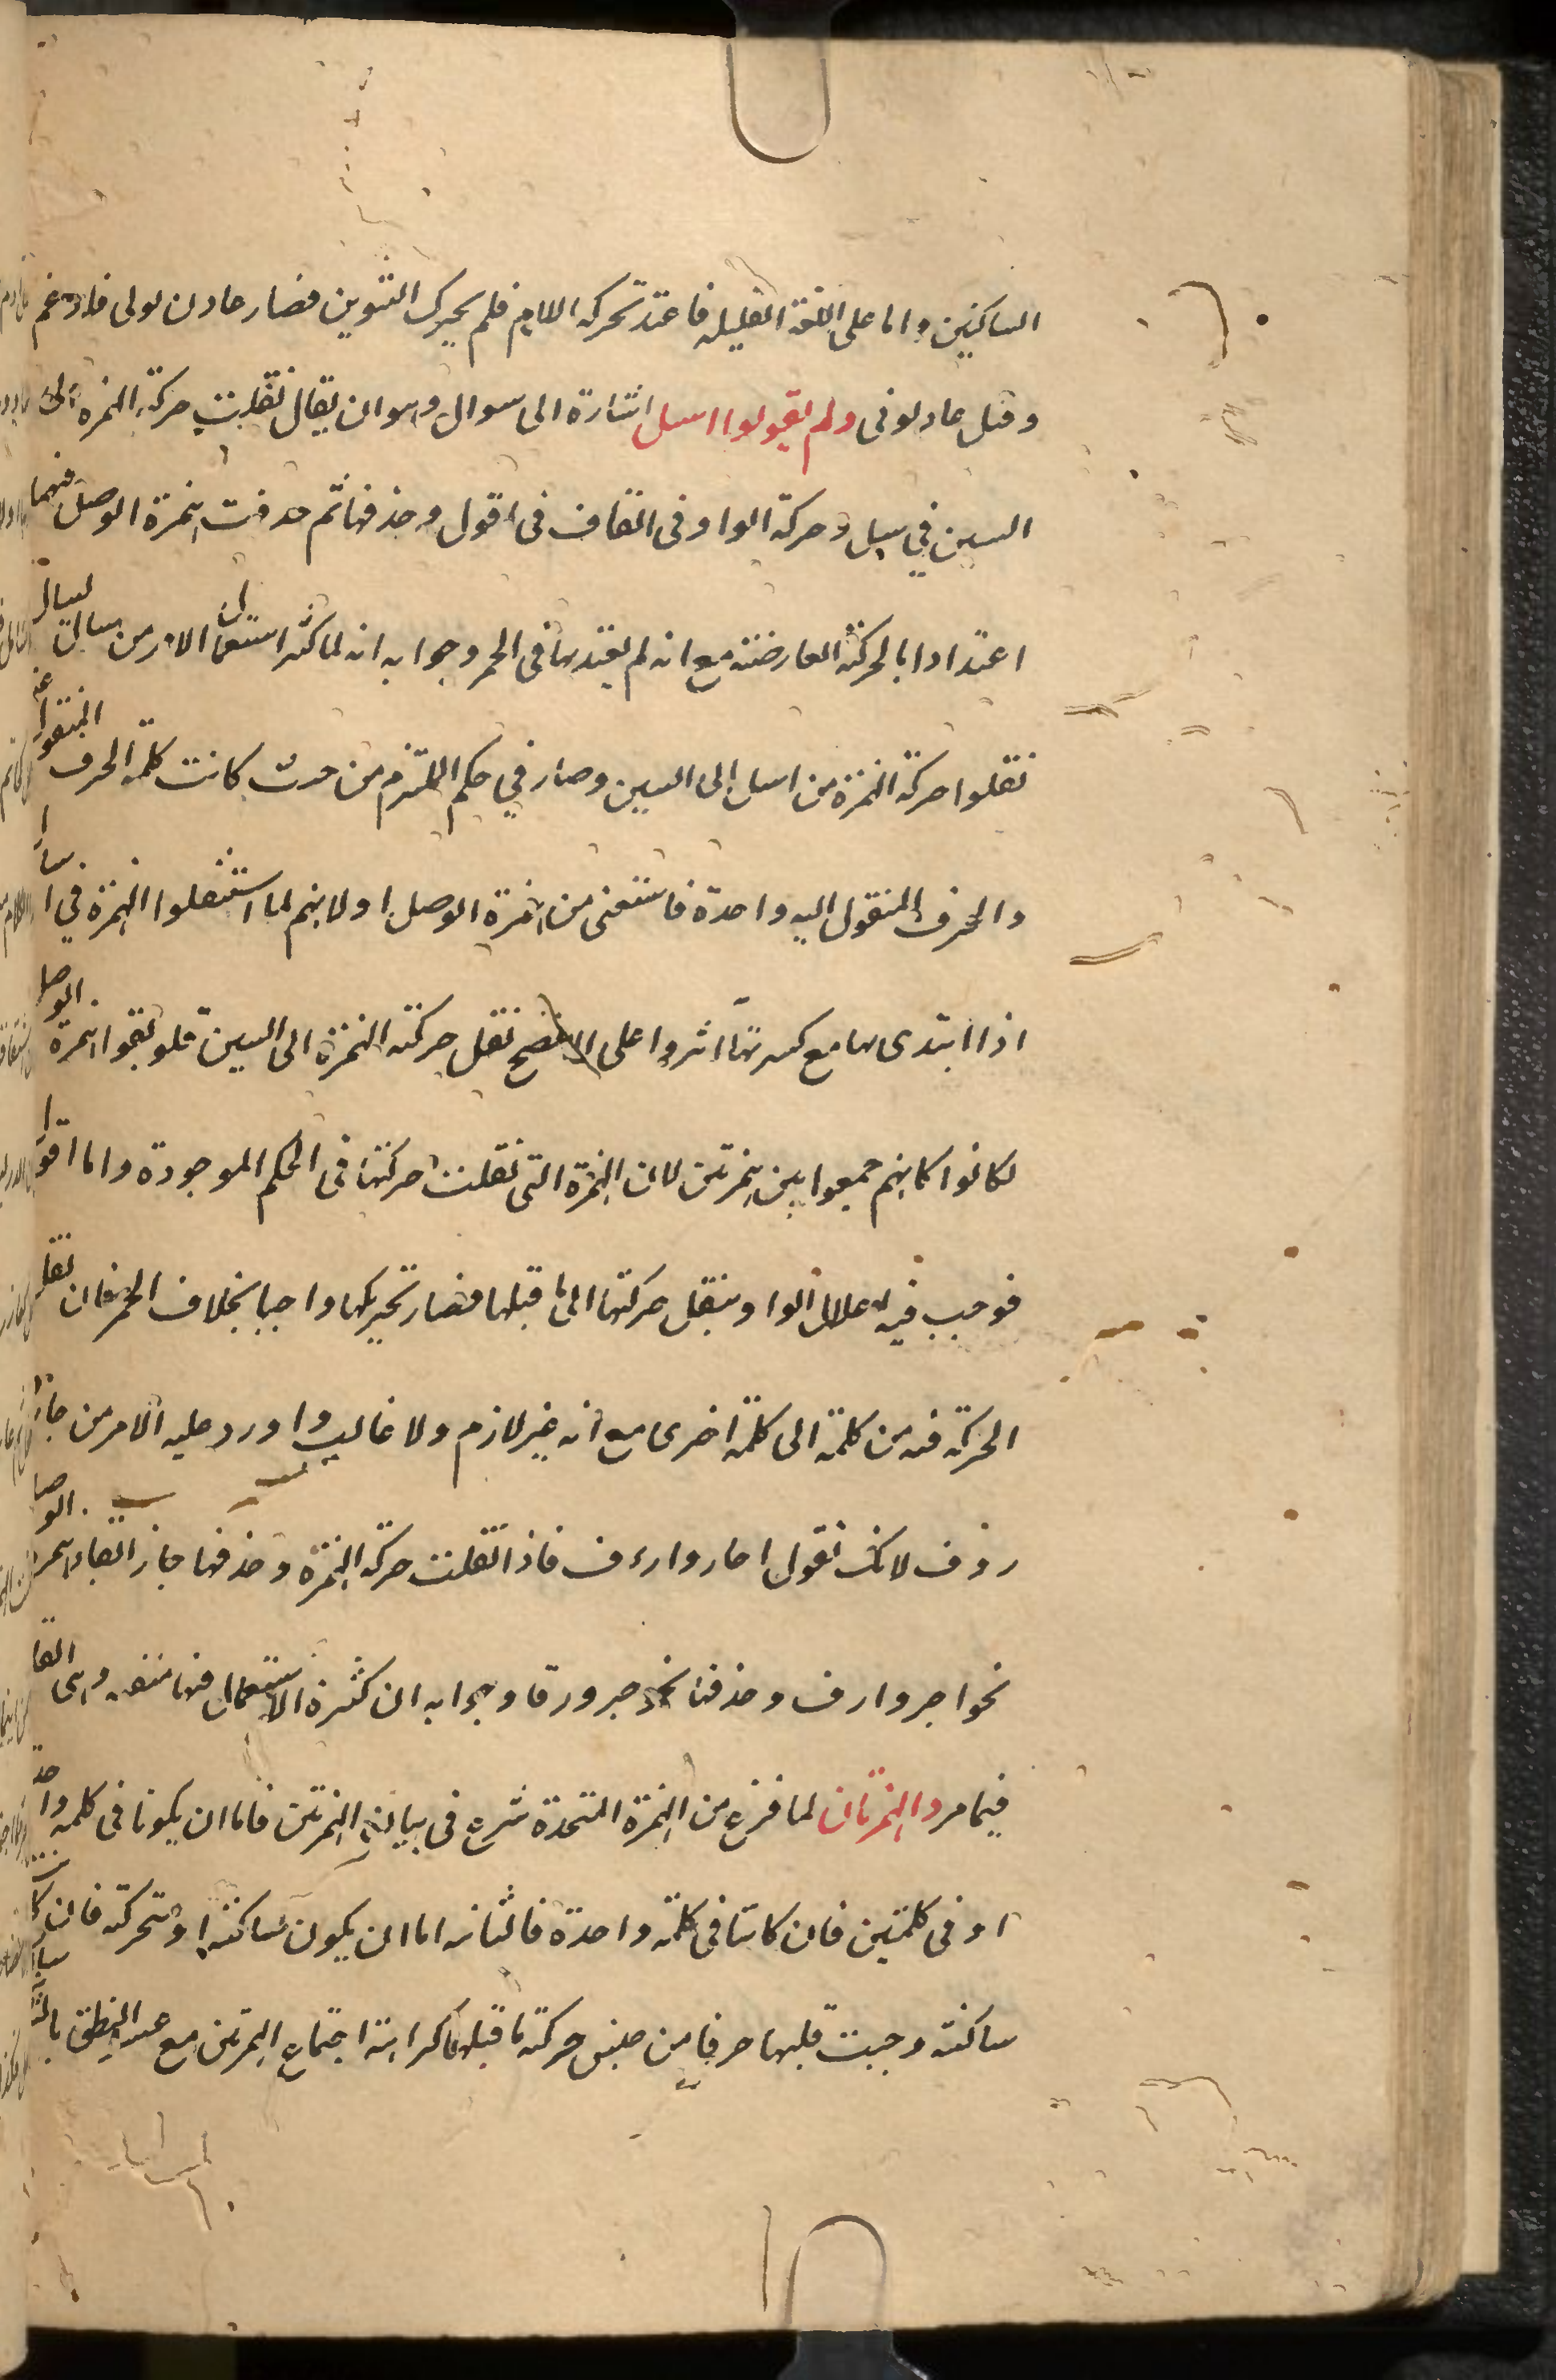 الساكنين واما على اللغة القليلة فاعتد تحركة اللام فلم يحرك التنوين فصار عادن لولى فادغم
وقيل عادلوفى ولم يقولوا اسل اشارة الى سوال وهو ان يقال نقلت حركة الهمزة الى
السين في سل وحركة الواو فى القاف فى اقول وحذفها ثم حذفت همزة الوصل فيهما
اعتدادا بالحركة العارضة مع انه لم يعتد بها فى الحمر وجوابه انه لما كثر استعمال الامر من سال يسال
نقلوا حركة الهمزة من اسل الى السين وصار في حكم الملتزم من حيث كانت كلمة الحرف المنقول عنه
والحرف المنقول اليه واحدة فاستغنى من همزة الوصل او لانهم لما استثقلوا الهمزة في اسال
اذا ابتدى بها مع كسرتها اثروا على الافصح نقل حركة الهمزة الى السين فلو بقوا همزة الوصل
لكانوا كانهم جمعوا بين همزتين لان الهمزة التى نقلت حركتها فى الحكم الموجودة واما اقول
فوجب فيه اعلال الواو بنقل حركتها الى ما قبلها فصار تحريكها واجبا بخلاف الحمر فان نقل
الحركة فيه من كلمة الى كلمة اخرى مع انه غير لازم ولا غالب واورد عليه الامر من جار
رؤف لانك تقول اجار وارءف فاذا نقلت حركة الهمزة وحذفها جاز ابقاء همزة الوصل
نحو اجر وارف وحذفها نحو جر ورف وجوابه ان كثرة الاستعمال فيها منتفية وهى القا
فيما مر والهمزتان لما فرغ من الهمزة المتحدة شرع فى بيان الهمزتين فاما ان يكونا فى كلمة واحدة
او فى كلمتين فان كانتا فى كلمة واحدة فالثانية اما ان يكون ساكنة او متحركة فان كانت
ساكنة وجبت قلبها حرفا من جنس حركة ما قبلها كراهة اجتماع الهمزتين مع عسر النطق بالثانية